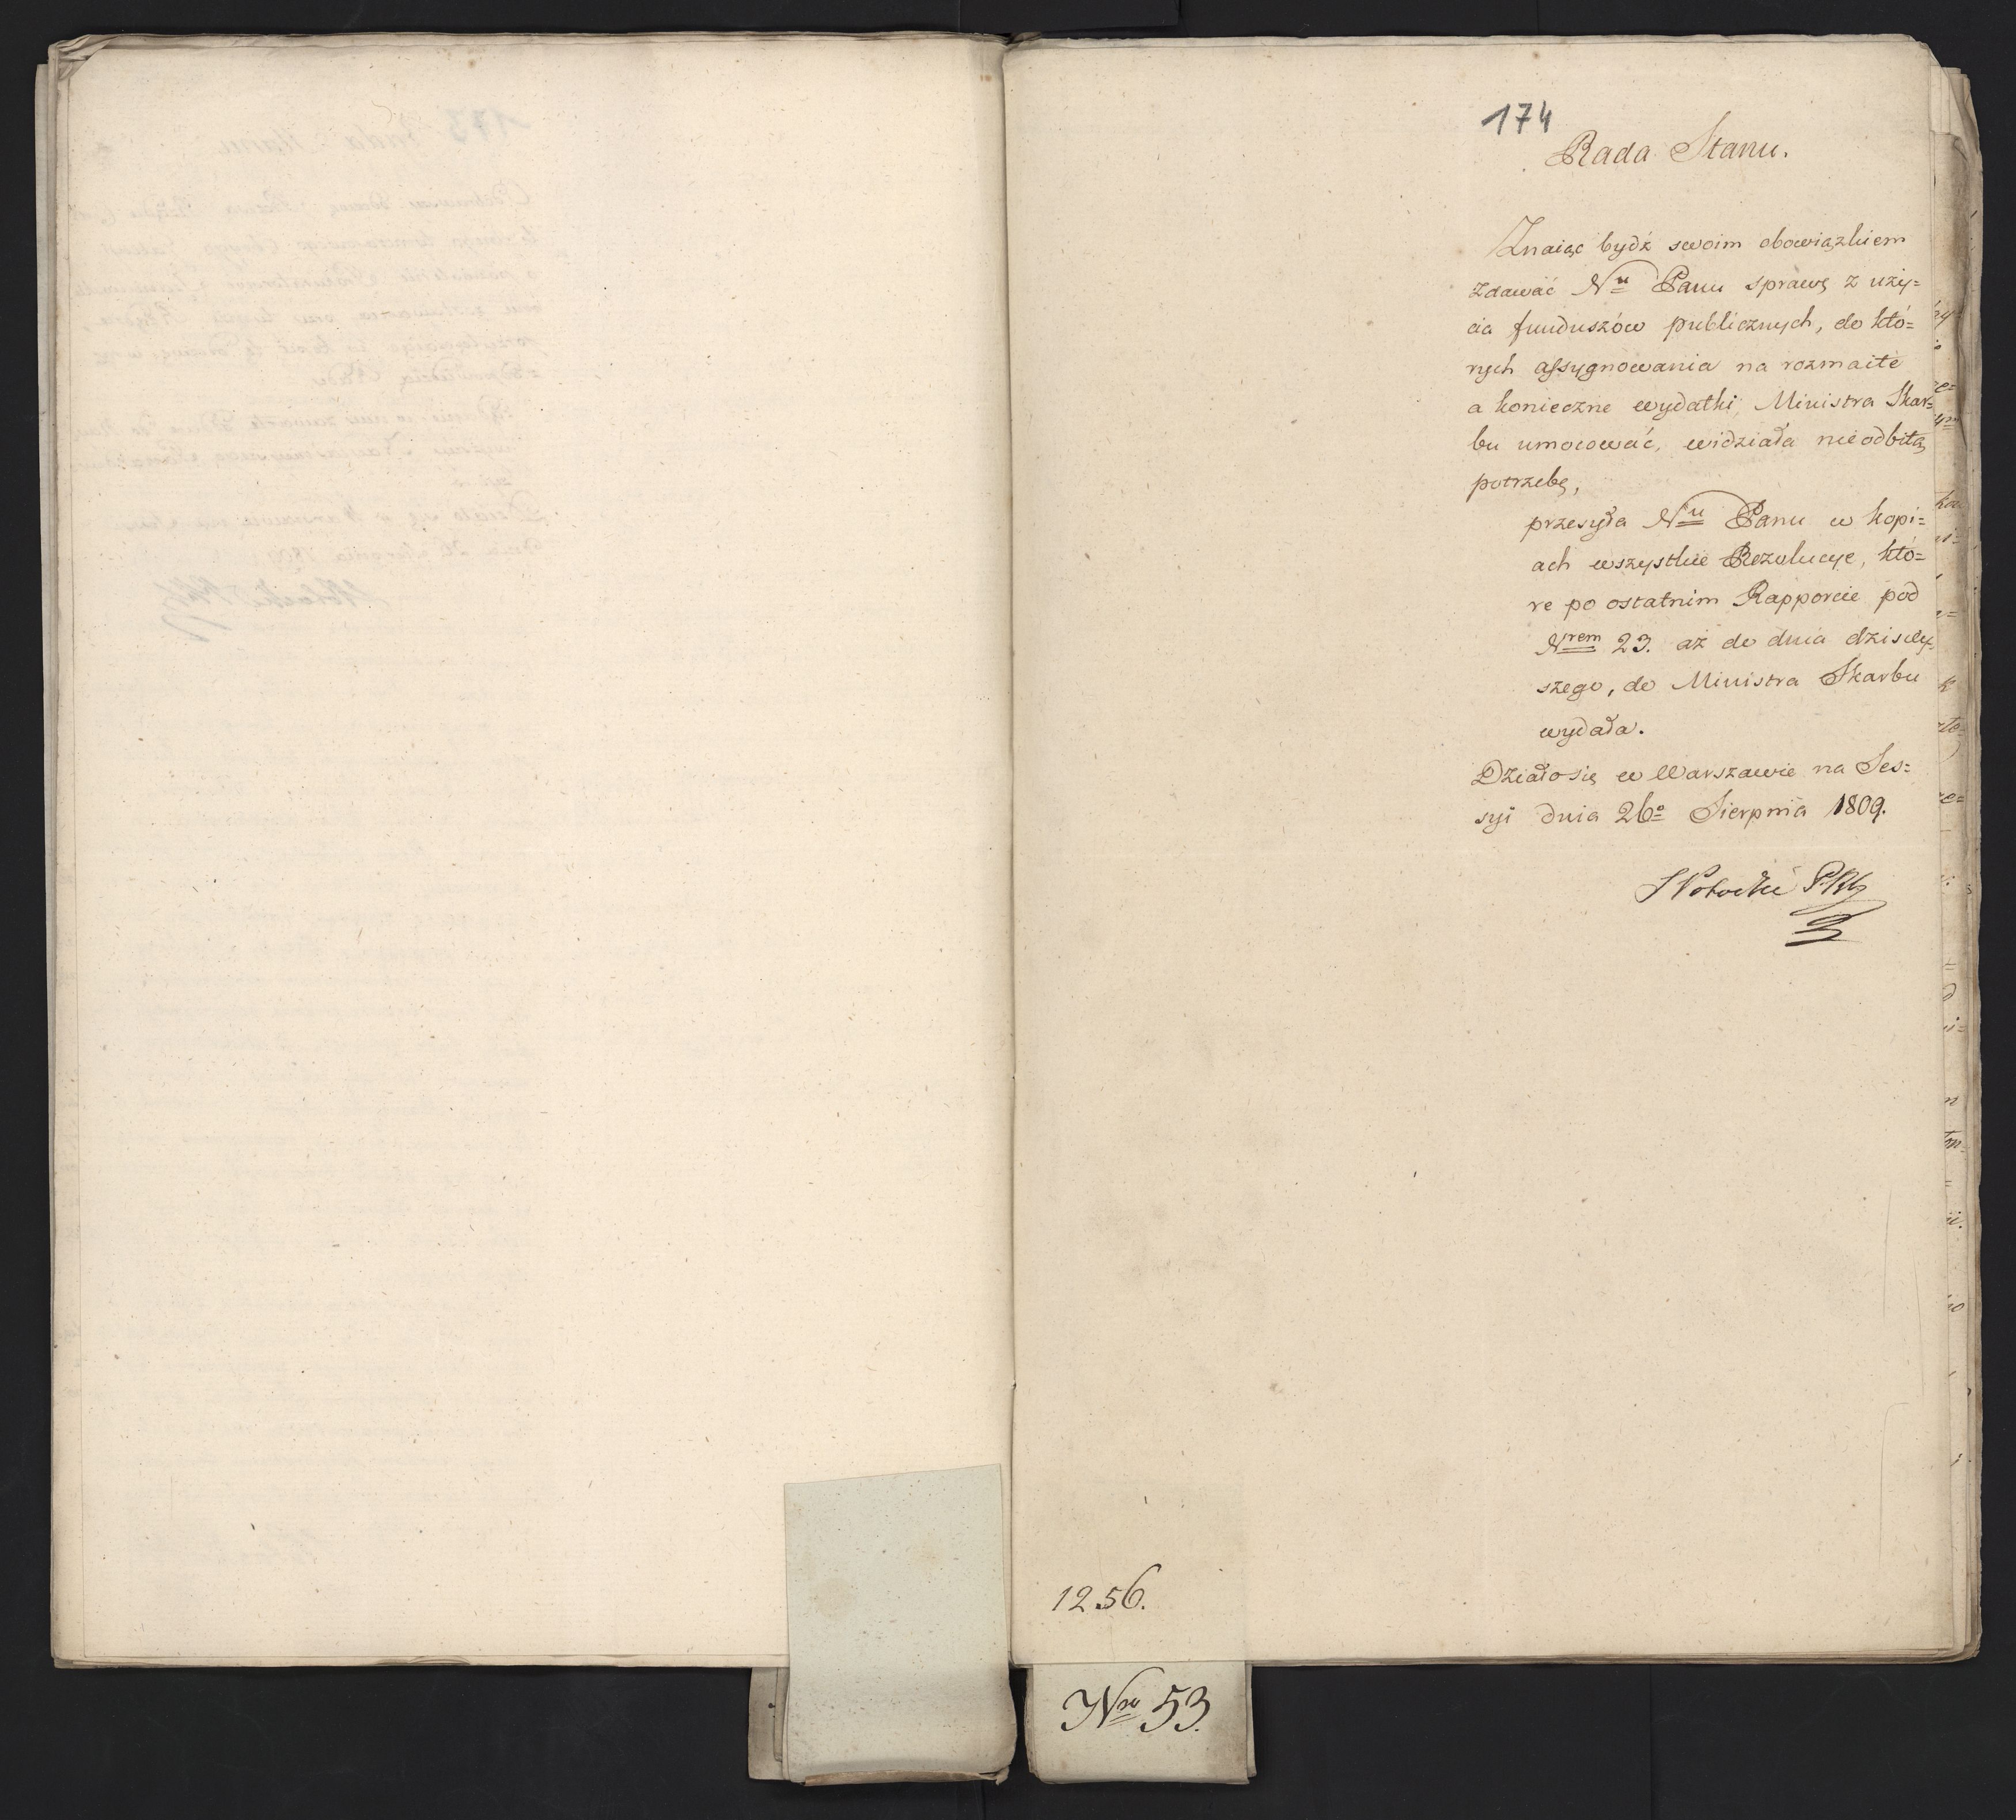 174
Rada Stanu.
Znaiąc bydź swoim obowiązkiem
zdawać Nu Panu sprawę z uży=
cia funduszów publicznych, do któ=
rych assygnowania na rozmaite
a konieczne wydatki, Ministra Skar=
bu umocować, widziała nieodbitą
potrzebę,
przesyła Nu Panu w kopi=
ach wszystkie Rezolucye, któ=
re po ostatnim Rapporcie pod
Nrem 23. aż do dnia dzisiey=
szego, do Ministra Skarbu
wydała.
Działo się w Warszawie na Ses=
syi dnia 26o Sierpnia 1809.
S Potocki
1256.
Nro 53.